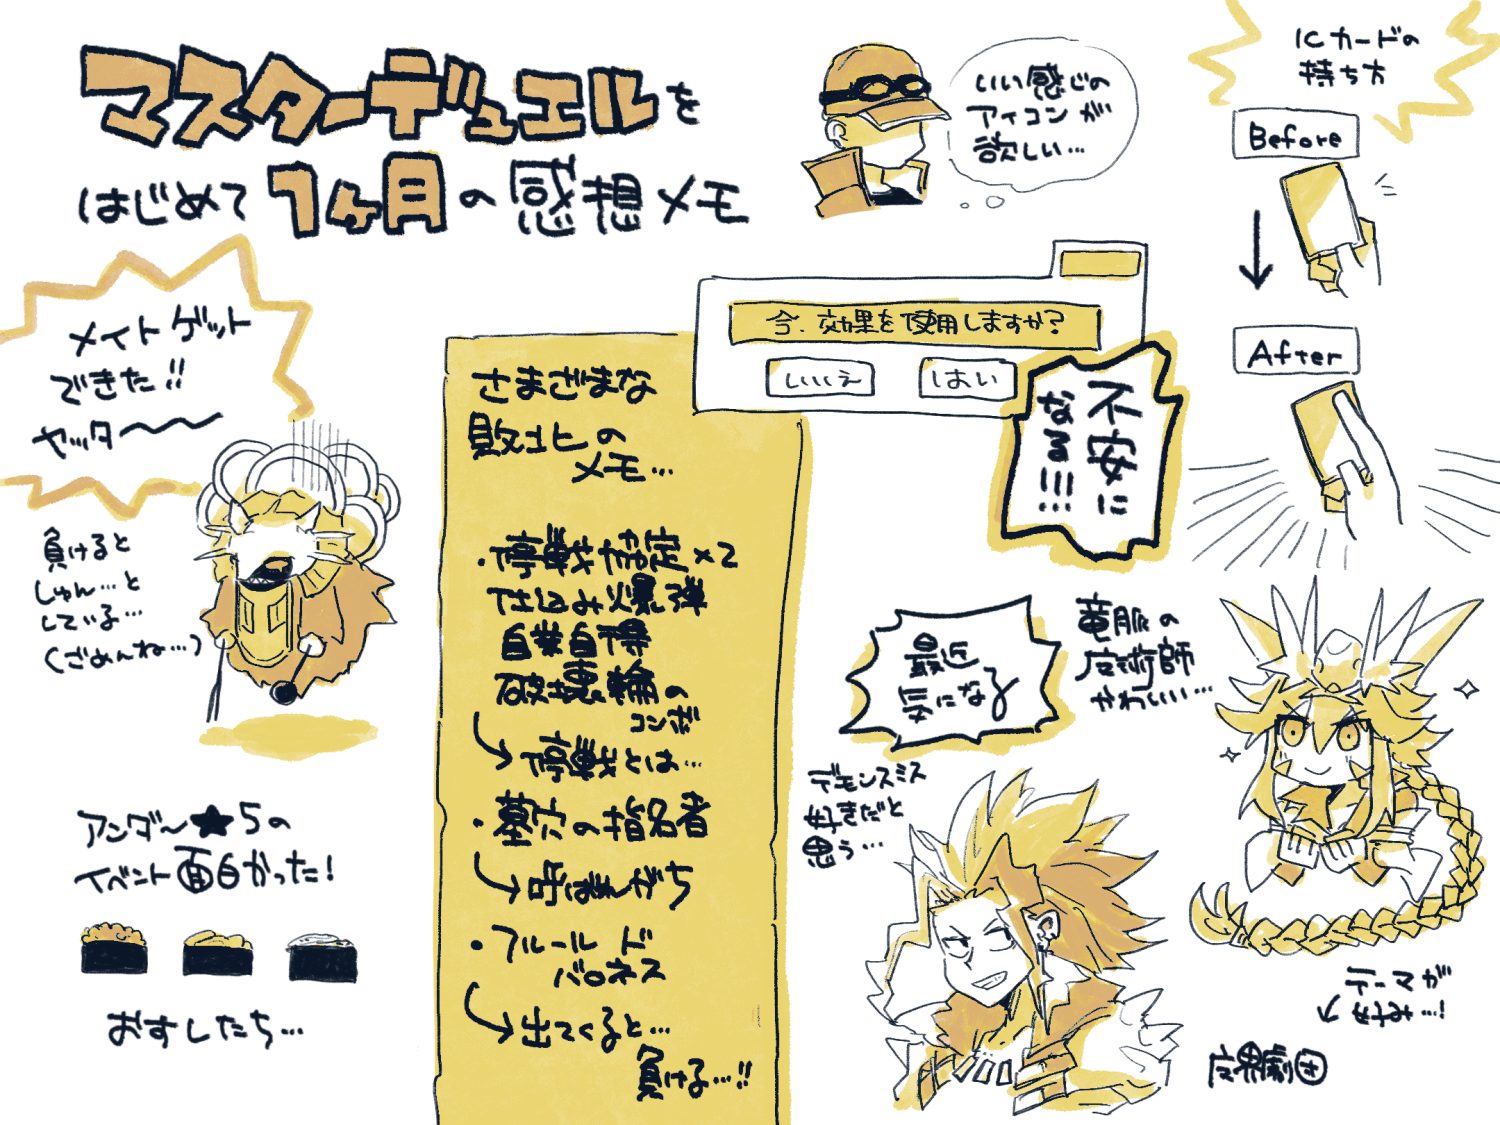 マスターデュエルを
はじめて1ヶ月の感想メモ
いい感じの
アイコンが
欲しい…
ICカードの
持ち方
Before
After
メイトゲット
できた!!
ヤッタ〜〜
負けると
しゅん…と
している…
(ごめんね…)
アンダ〜★5の
イベント面白かった!
おすしたち…
さまざまな
敗北の
メモ…
・停戦協定×2
仕込み爆弾
自業自得
破壊輪の
コンボ
↳停戦とは…
・墓穴の指名者
↳呼ばれがち
・フルール ド
バロネス
↳出てくると…
負ける…!!
今、効果を使用しますか?
いいえ
はい
不安に
なる!!!
最近
気になる
デモンスミス
好きだと
思う…
竜脈の
魔術師
かわいい…
テーマが
↙好み…!
魔界劇団